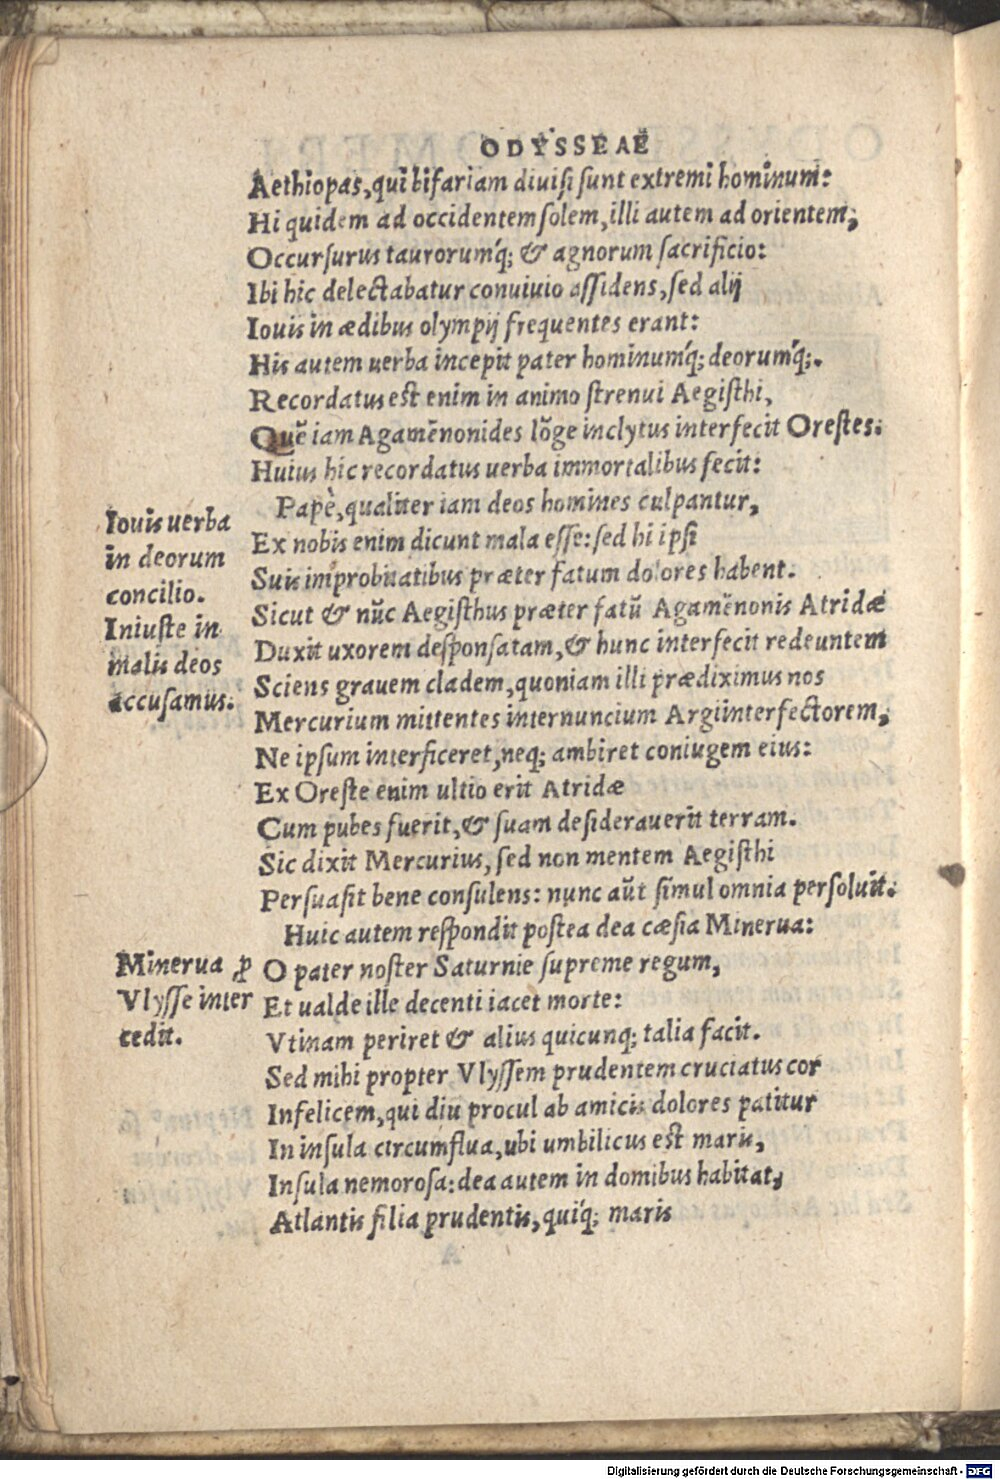 ODYSSEAE
Aethiopas, qui bifariam diuisi sunt extremi hominum:
Hi quidem ad occidentem solem, illi autem ad orientem,
Occursurus taurorumq́; & agnorum sacrificio:
Ibi hic delectabatur conuiuio assidens, sed alij
Iouis in ædibus olympij frequentes erant:
His autem uerba incepit pater hominumq́; deorumq́;.
Recordatus est enim in animo strenui Aegisthi,
Quē iam Agamēnonides lōge inclytus interfecit Orestes:
Huius hic recordatus uerba immortalibus fecit:
Papè, qualiter iam deos homines culpantur,
Ex nobis enim dicunt mala esse: sed hi ipsi
Suis improbitatibus præter fatum dolores habent.
Sicut & nūc Aegisthus præter fatū Agamēnonis Atridæ
Duxit uxorem desponsatam, & hunc interfecit redeuntem
Sciens grauem cladem, quoniam illi prædiximus nos
Mercurium mittentes internuncium Argiinterfectorem,
Ne ipsum interficeret, neq; ambiret coniugem eius:
Ex Oreste enim ultio erit Atridæ
Cum pubes fuerit, & suam desiderauerit terram.
Sic dixit Mercurius, sed non mentem Aegisthi
Persuasit bene consulens: nunc aūt simul omnia persoluit.
Huic autem respondit postea dea cæsia Minerua:
O pater noster Saturnie supreme regum,
Et ualde ille decenti iacet morte:
Vtinam periret & alius quicunq; talia facit.
Sed mihi propter Vlyssem prudentem cruciatus cor
Infelicem, qui diu procul ab amicis dolores patitur
In insula circumflua, ubi umbilicus est maris,
Insula nemorosa: dea autem in domibus habitat,
Atlantis filia prudentis, quiq́; maris
Iouis uerba
in deorum
concilio.
Iniuste in
malis deos
accusamus.
Minerua ꝑ
Vlysse inter
cedit.
Digitalisierung gefördert durch die Deutsche Forschungsgemeinschaft - DFG